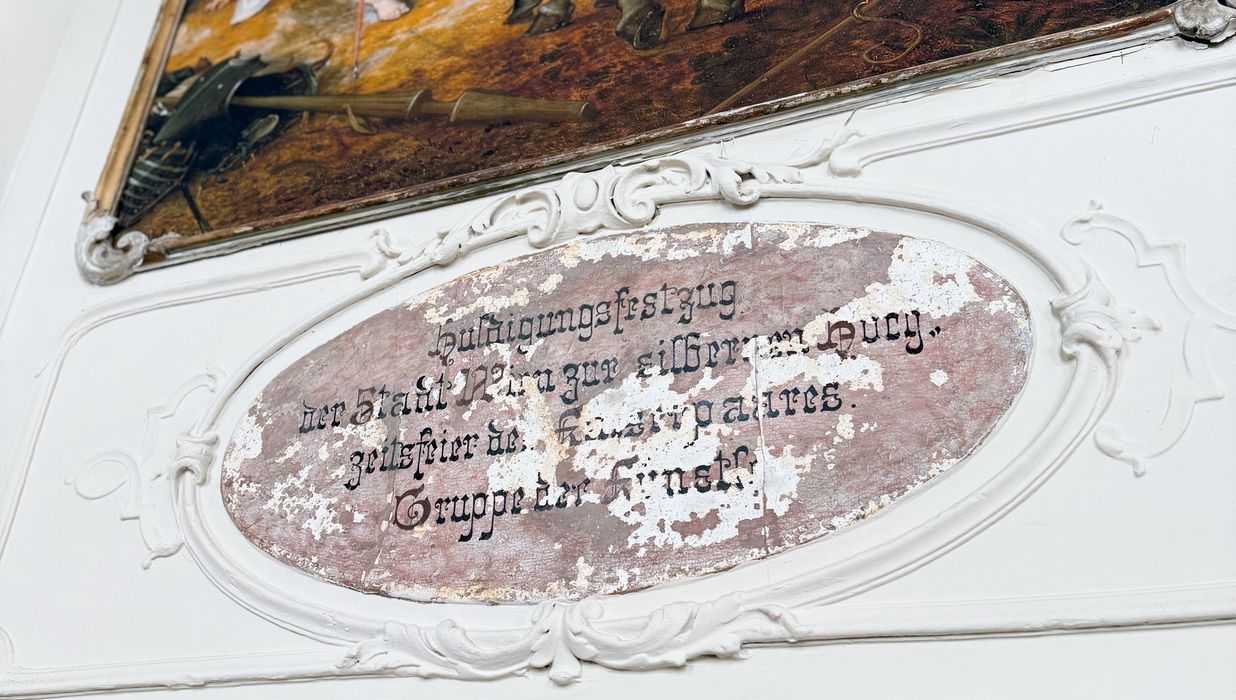 Huldigungsfestzug
der Stadt Wien zur silbernen Hoch-
zeitsfeier des Kaiserpaares.
Gruppe der